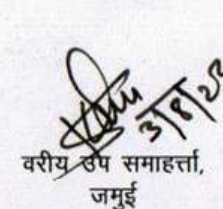 3/8/23
वरीय उप समाहर्त्ता,
जमुई